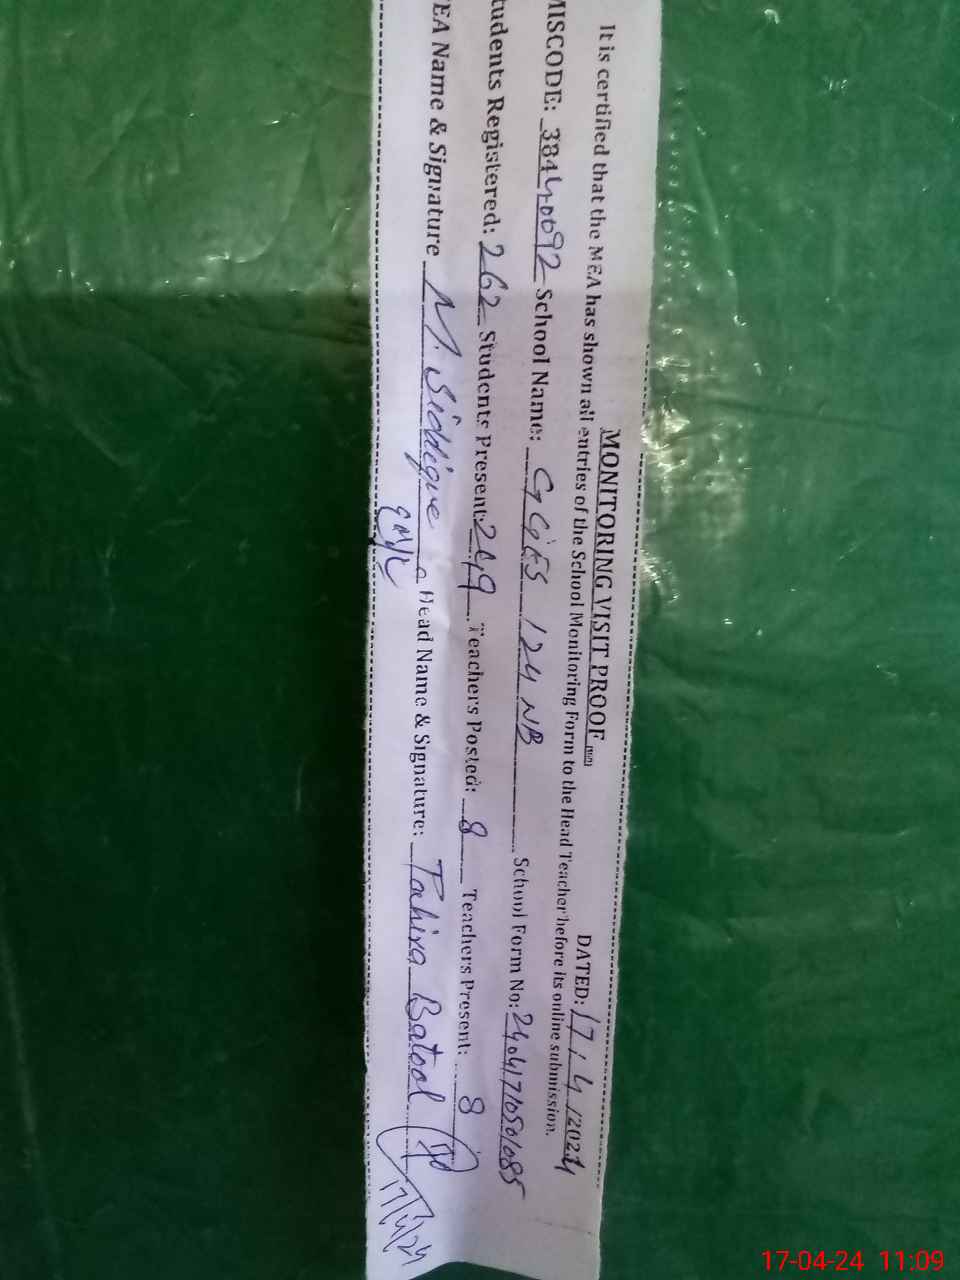 MONITORING VISIT PROOF
DATED: 17/4/2024
It is certified that the MEA has shown all entries of the School Monitoring Form to the Head Teacher before its online submission.
MISCODE: 38440092 School Name: GGES 124 NB School Form No: 24041710501085
tudents Registered: 262 Students Present: 249 Teachers Posted: 8 Teachers Present: 8
EA Name & Signature M. Siddique Head Name & Signature: Tahira Batool
17/4/24
17-04-24 11:09